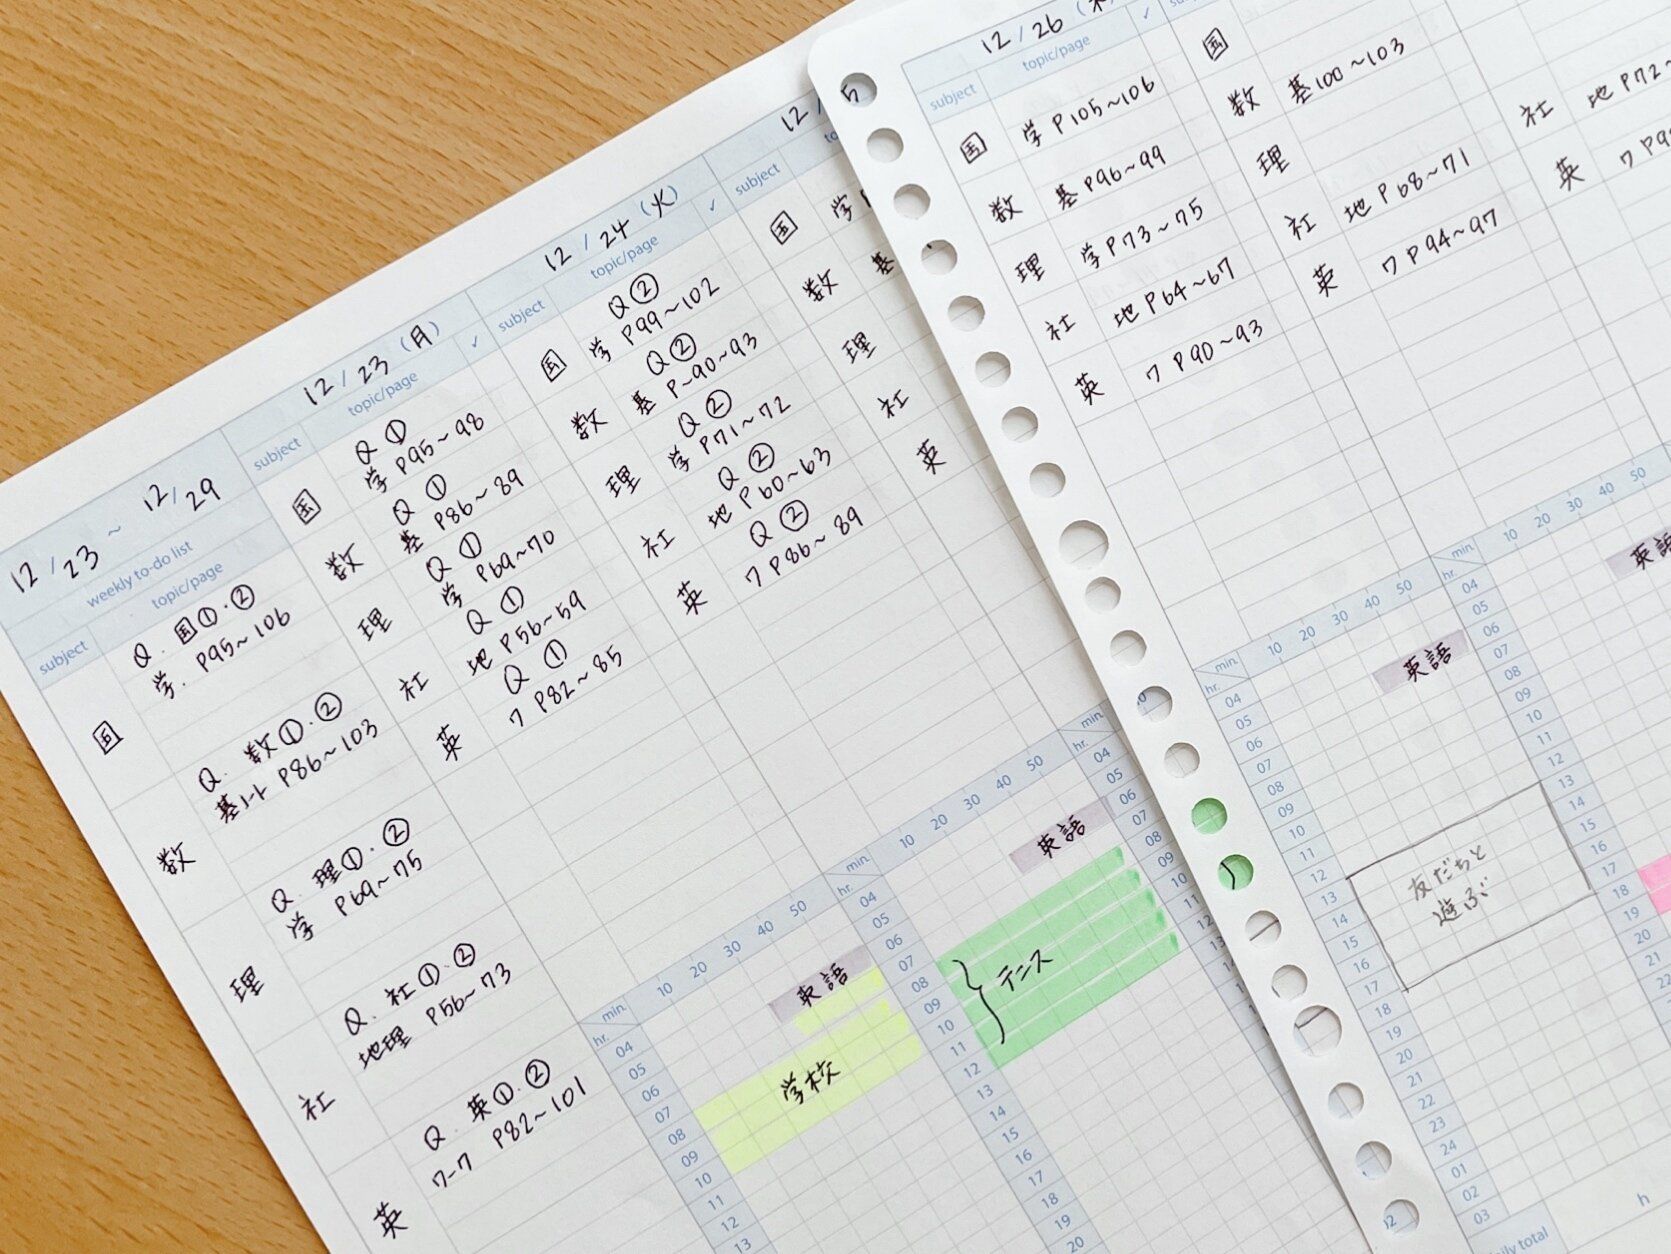 12/23 ~ 12/29
weekly to-do list
subject
topic/page
国
Q. 国①・②
学. P95~106
数
Q. 数①・②
基ノート P86~103
理
Q. 理①・②
学 P69~75
社
Q. 社①・②
地理 P56~73
英
Q. 英①・②
ワーク P82~101
12/23(月)
subject
topic/page
✓
国
Q ①
学 P95~98
数
Q ①
基 P86~89
理
Q ①
学 P69~70
社
Q ①
地 P56~59
英
Q ①
ワ P82~85
min.
10 20 30 40 50
hr.
04
05
06
07
08
09
10
11
12
13
英語
学校
12/24(火)
subject
topic/page
✓
国
Q ②
学 P99~102
数
Q ②
基 P~90~93
理
Q ②
学 P71~72
社
Q ②
地 P60~63
英
Q ②
ワ P86~89
min.
10 20 30 40 50
hr.
04
05
06
07
08
09
10
11
12
13
14
15
16
17
18
19
20
英語
テニス
12/
subject
国
学
数
基
理
社
英
min.
hr.
04
05
06
07
08
09
10
11
12
13
12/26
subject
topic/page
✓
国
学 P105~106
数
基 P96~99
理
学 P73~75
社
地 P64~67
英
ワ P90~93
min.
10 20 30 40 50
hr.
04
05
06
07
08
09
10
11
12
13
14
15
16
17
18
19
20
21
22
23
24
01
02
03
英語
友だちと
遊ぶ
h
国
数
基100~103
理
社
地 P68~71
英
ワ P94~97
min.
10 20 30 40 50
hr.
04
05
06
07
08
09
10
11
12
13
14
15
16
17
18
19
20
21
22
社
地 P72~
英